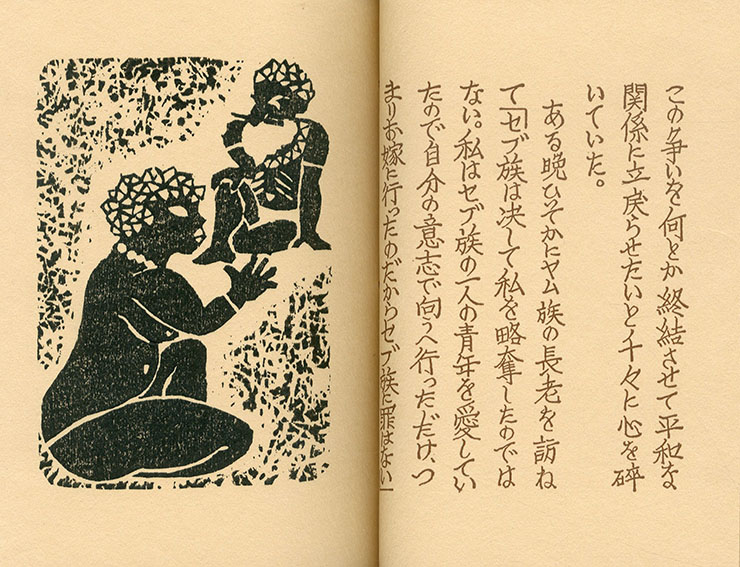 この争いを何とか終結させて平和な
関係に立戻らせたいと千々に心を砕
いていた。
ある晩ひそかにヤム族の長老を訪ね
て「セブ族は決して私を略奪したのでは
ない。私はセブ族の一人の青年を愛してい
たので自分の意志で向うへ行っただけ、つ
まりお嫁に行ったのだからセブ族に罪はない」